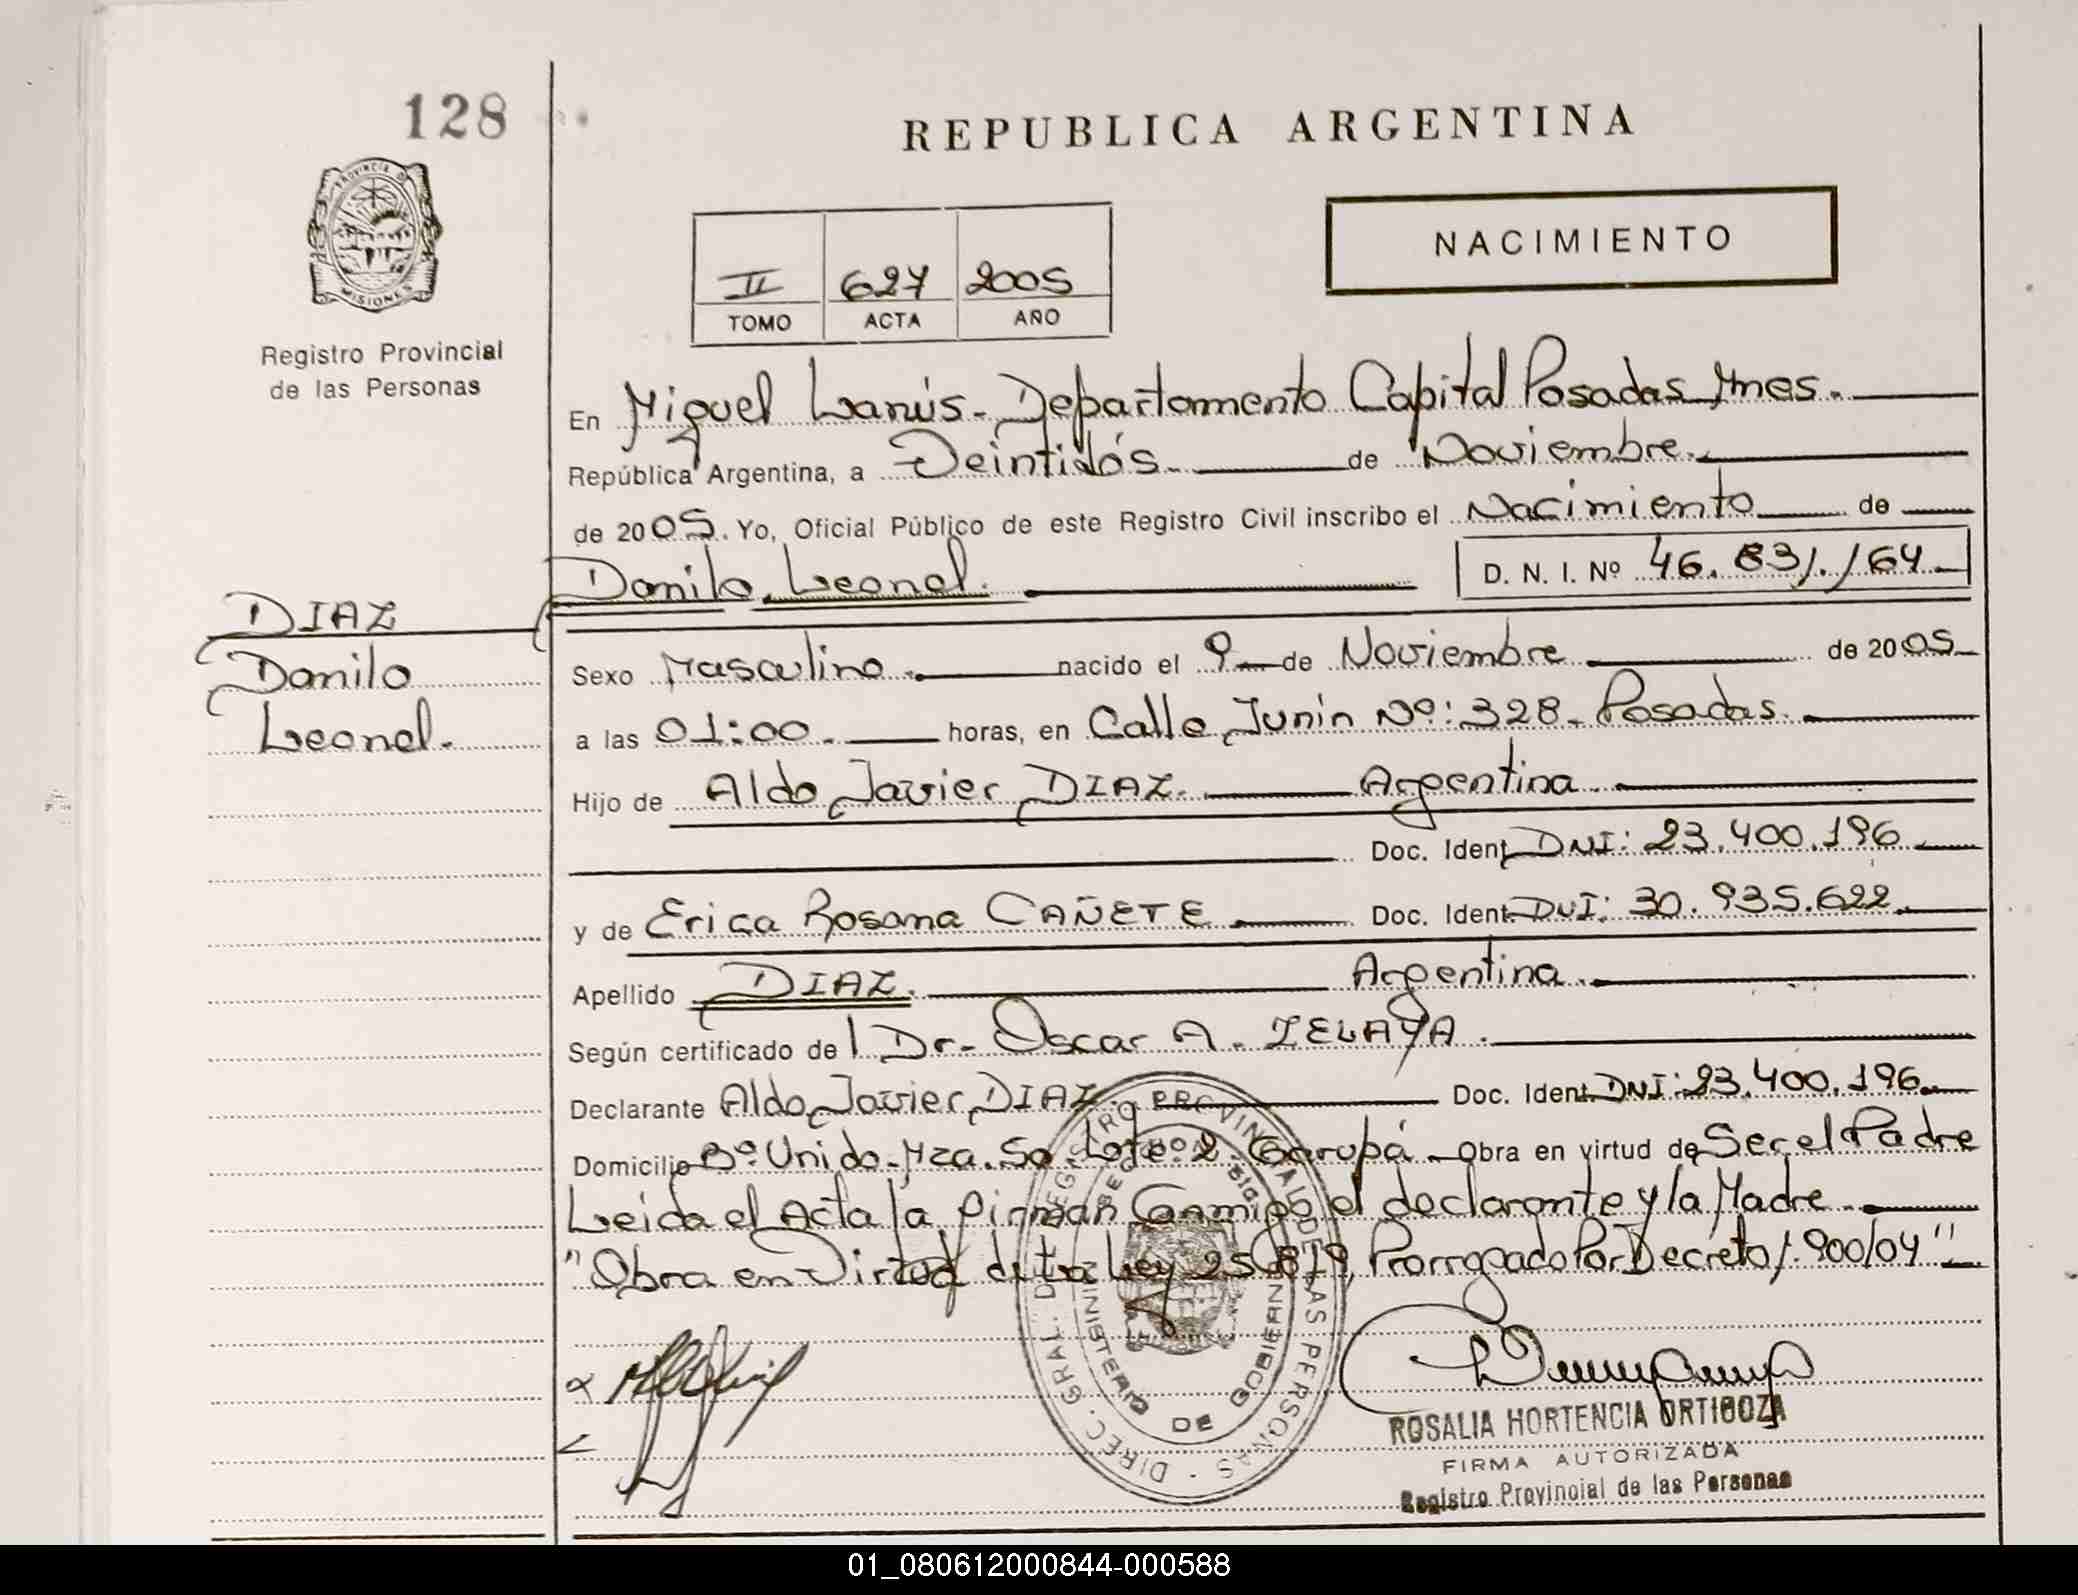 128
REPUBLICA ARGENTINA
PROVINCIA DE
MISIONES
NACIMIENTO
II 627 2005
TOMO ACTA AÑO
Registro Provincial
de las Personas
En Miguel Lanús - Departamento Capital Posadas Mnes.
República Argentina, a Veintidós de Noviembre.
de 2005. Yo, Oficial Público de este Registro Civil inscribo el Nacimiento de
Danilo Leonel. D. N. I. Nº 46.831.164
DIAZ
Danilo
Leonel.
Sexo Masculino. nacido el 9 de Noviembre de 2005
a las 01:00. horas, en Calle Junín Nº: 328. Posadas.
Hijo de Aldo Javier DIAZ. Argentina.
Doc. Ident. DNI: 23.400.196
y de Erica Rosana CAÑETE Doc. Ident. DNI: 30.935.622.
Apellido DIAZ. Argentina.
Según certificado del Dr. Oscar A. ZELAYA.
Declarante Aldo Javier DIAZ Doc. Ident. DNI: 23.400.196
Domicilio Bº Unido - Mza. 50 - Lote º 2. Garupá Obra en virtud de Ser el Padre
Leida el Acta la firman Conmigo el declarante y la Madre
"Obra en Virtud de la Ley 25.819, Prorrogado Por Decreto 1.900/04"
DIREC. GRAL. DEL REGISTRO PROVINCIAL DE LAS PERSONAS
MINISTERIO DE GOBIERNO
ROSALIA HORTENCIA ORTIGOZA
FIRMA AUTORIZADA
Registro Provincial de las Personas
01_080612000844-000588